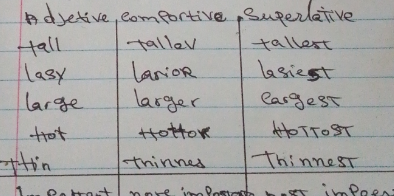 Adjetive comportive Superlative
tall taller tallest
Lasy Lasior lasiest
large larger largest
Hot Hottor HoTTosT
Thin Thinnes ThinnesT